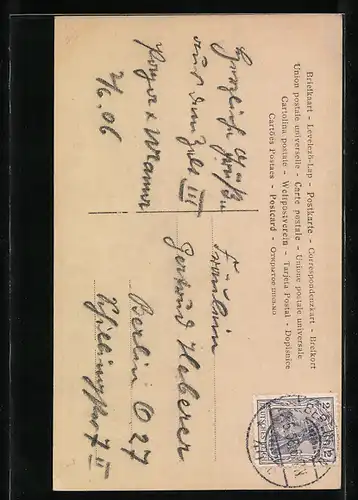 Briefkaart – Levelezh-Lap – Postkarte – Correspondenzkart – Brefkort
Union postale universelle – Carte postale – Unione postale universale
Cartolina postale – Weltpostverein – Tarjeta Postal – Dopisnice
Cartões Postaes – Postcard – Открытое письмо
Herzliche Grüße
aus dem Zelt III
2/6.06
Fräulein
Gertrud Heberer
Berlin O 27
II
2
2